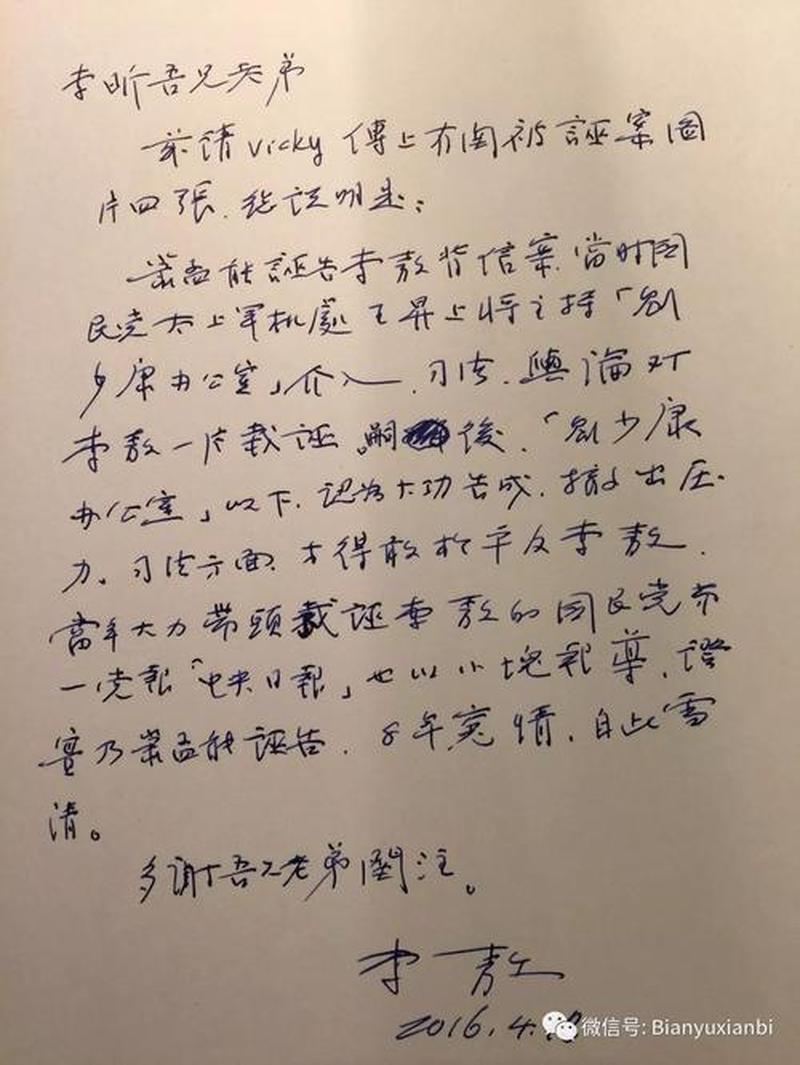 李昕吾兄老弟
茲請Vicky傳上有關被誣案圖
片四張．總說明是：
蕭孟能誣告李敖背信案．當時國
民党太上軍机處王昇上將主持「劉
少康办公室」介入．司法．輿論对
李敖一片栽誣。嗣後．「劉少康
办公室」以下．認為大功告成．撤出压
力。司法方面．才得敢於平反李敖．
當年大力帶頭栽誣李敖的国民党第
一党報「中央日報」也以小塊報導．證
實乃蕭孟能誣告．8年冤情．自此雪
清。
多謝吾兄老弟關注。
李敖
2016.4.
微信号: Bianyuxianbi